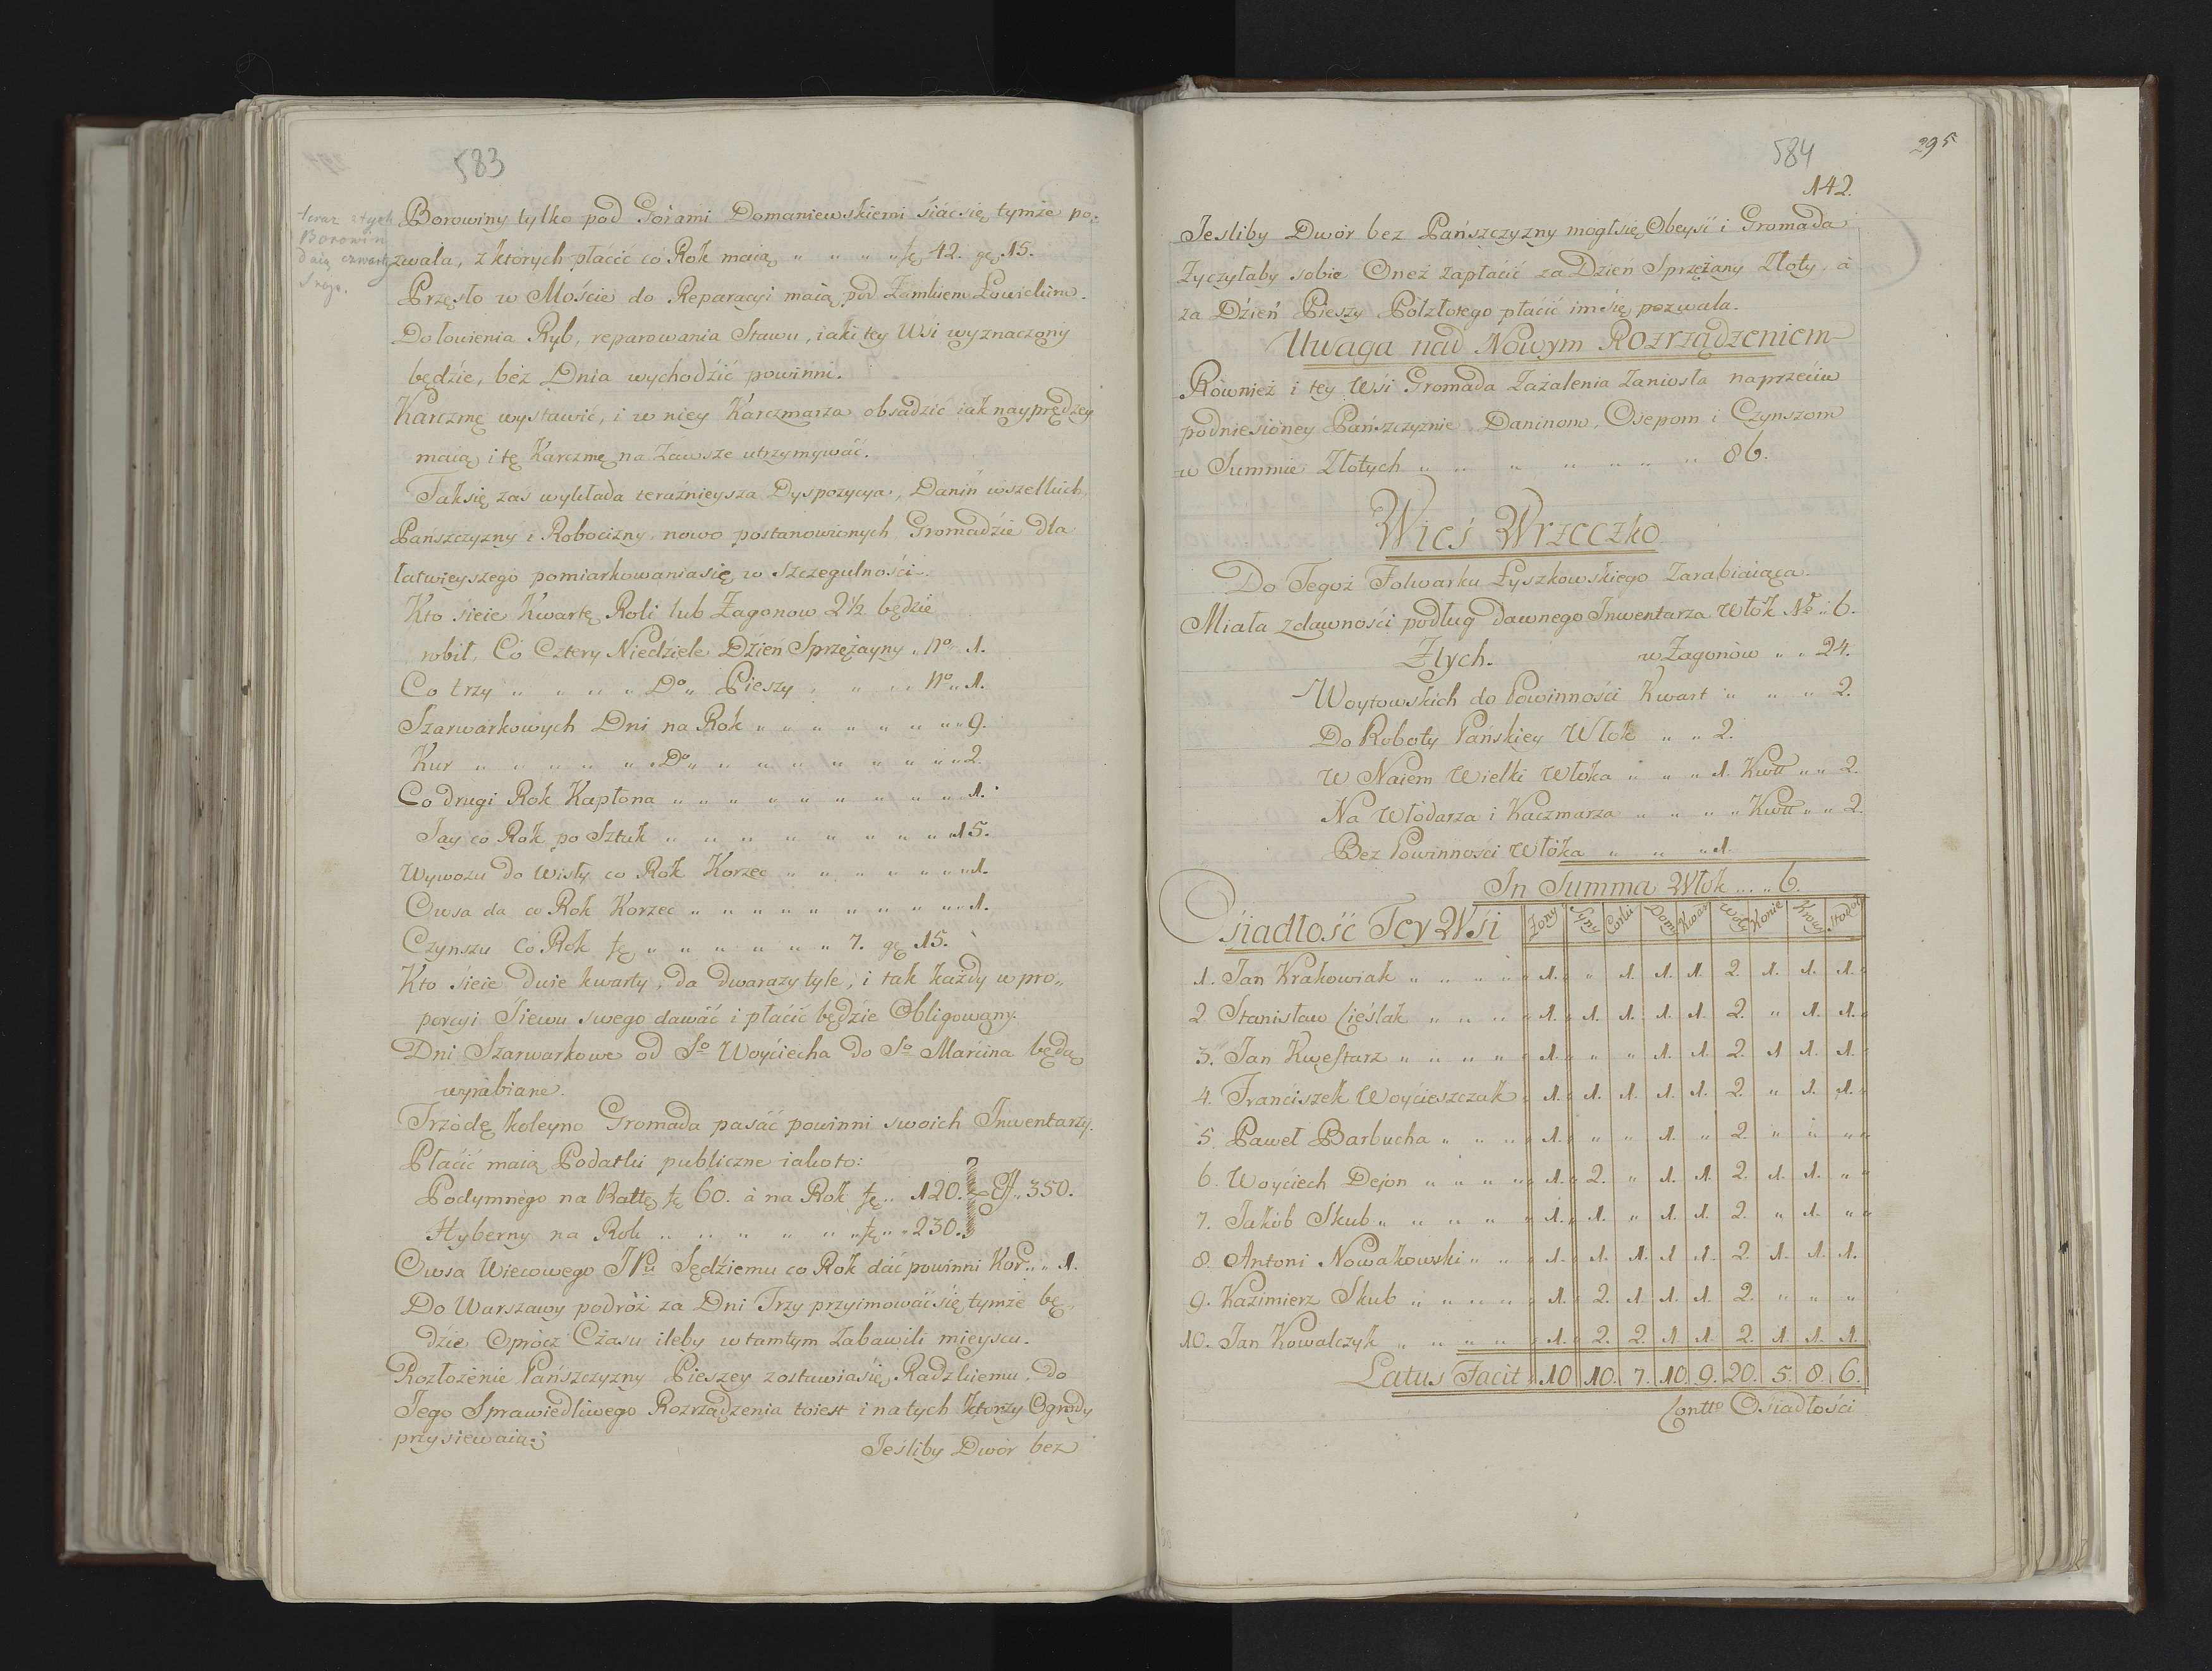 583
teraz z tych
Borowin
daią czwarty
Snop.
Borowiny tylko pod Górami Domaniewskiemi siać się tymże po=
zwala, z których płacić co Rok maią „ „ „ „ fę 42. gę 15.
Przęsło w Moście do Reparacyi maią pod Zamkiem Łowickim.
Do łowienia Ryb, reparowania Stawu, iaki tey Wsi wyznaczony
będzie, bez Dnia wychodźić powinni.
Karczmę wystawić, i w niey Karczmarza obsadzić iak nayprędzey
maią i tę Karczmę na Zawsze utrzymywać.
Tak się zaś wykłada teraźnieysza Dyspozycya, Danin wszelkich,
Pańszczyzny i Robocizny nowo postanowionych Gromadźie dla
łatwieyszego pomiarkowania się w Szczegulności.
Kto sieie Kwartę Roli lub Zagonow 2½ będzie
robił, Co Cztery Niedziele Dźień Sprzężayny „ No 1.
Co trzy „ „ „ „ Do „ Pieszy „ „ „ No „ 1.
Szarwarkowych Dni na Rok „ „ „ „ „ „ „ „ 9.
Kur „ „ „ „ „ Do „ „ „ „ „ „ „ „ „ 2.
Co drugi Rok Kapłona „ „ „ „ „ „ „ „ „ „ 1.
Jay co Rok po Sztuk „ „ „ „ „ „ „ „ „ „ 15.
Wywozu do Wisły co Rok Korzec „ „ „ „ „ „ „ 1.
Owsa da co Rok Korzec „ „ „ „ „ „ „ „ „ „ 1.
Czynszu Co Rok fę „ „ „ „ „ „ „ 7. gę 15.
Kto śieie dwie kwarty, da dwa razy tyle, i tak każdy w pro„
porcyi Śiewu swego dawać i płacić będzie Obligowany.
Dni Szarwarkowe od So Woyćiecha do So Marćina będą
wyrabiane.
Trzodę koleyno Gromada pasać powinni swoich Inwentarzy.
Płaćić maią Podatki publiczne iakoto:
Podymnego na Rattę fę 60. à na Rok fę „ 120. } 350.
Hyberny na Rok „ „ „ „ „ „ fę „ 230.
Owsa Wiecowego JPu Sędziemu co Rok dać powinni Kor: „ 1.
Do Warszawy podróż za Dni Trzy przyimować się tymże bę„
dzie Oprócz Czasu ileby w tamtym Zabawili mieyscu.
Rozłożenie Pańszczyzny Pieszey zostawia się Radzkiemu, do
Jego Sprawiedliwego Rozrządzenia toiest i na tych którzy Ogrody
przysiewaią:
Jeśliby Dwór bez
584
295
142.
Jeśliby Dwór bez Pańszczyzny mógł się Obeyść i Gromada
Życzyłaby sobie Oneż zapłaćić za Dzień Sprzężany Złoty, à
za Dźień Pieszy Półzłotego płaćić im się pozwala.
Uwaga nad Nowym Rozrządzeniem
Również i tey Wśi Gromada Zażalenia Zaniosła naprzeciw
podniesioney Pańszczyznie, Daninom, Osepom i Czynszom
w Summie Złotych „ „ „ „ „ „ „ 86.
Wieś Wrzeczko
Do Tegoż Folwarku Łyszkowskiego Zarabiaiąca
Miała z dawności podług dawnego Inwentarza Włók No „ 6.
Z tych. w Zagonów „ „ 24.
Woytowskich do Powinności Kwart „ „ „ 2.
Do Roboty Pańskiey Włók „ „ 2.
W Naiem Wielki Włoka „ „ „ 1. Kwtt „ „ 2.
Na Włodarza i Kaczmarza „ „ „ „ Kwtt „ „ 2.
Bez Powinnośći Włóka „ „ „ 1.
In Summa Włók .... 6.
Ośiadłość Tey Wśi Żony Syny Corki Domy Kwar Woły Konie Krowy Stodoły
1. Jan Krakowiak „ „ „ „ „ 1. „ 1. 1. 1. 2. 1. 1. 1.
2 Stanisław Cieślak „ „ „ „ 1. 1. 1. 1. 1. 2. „ 1. 1.
3. Jan Kwestarz „ „ „ „ „ 1. „ „ 1. 1. 2. 1 1. 1.
4. Franciszek Woyćieszczak „ 1. 1. 1. 1. 1. 2. „ 1. 1.
5 Paweł Barbucha „ „ „ „ 1. „ „ 1. „ 2. „ „ „
6. Woyćiech Dejon „ „ „ „ 1. 2. „ 1. 1. 2. 1. 1. „
7. Jakób Skub „ „ „ „ „ 1. 1. „ 1. 1. 2. „ 1. „
8. Antoni Nowakowski „ „ „ 1. 1. 1. 1 1. 2. 1. 1. 1.
9. Kazimierz Skub „ „ „ „ „ 1. 2. 1. 1. 1. 2. „ „ „
10. Jan Kowalczyk „ „ „ „ „ 1. 2. 2. 1. 1. 2. 1. 1. 1.
Latus Facit 10 10. 7. 10. 9. 20. 5. 8. 6.
Contto Ośiadłości